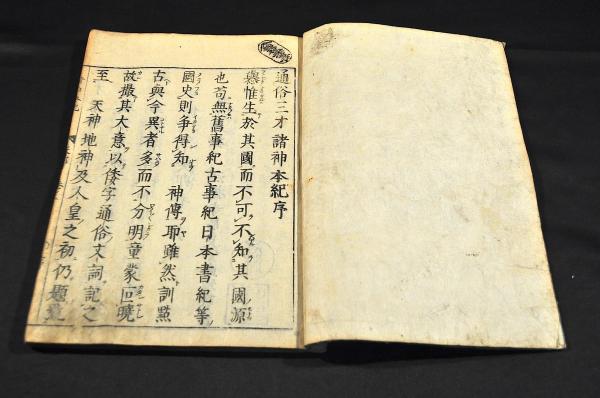 通俗三才諸神本紀序
爨惟生於其國而不可不知其國源
也苟無舊事紀古事紀日本書紀等
國史則争得知　神傳耶雖然訓點
古與今異者多而不分明童蒙叵曉
故撒其大意以倭字通俗文詞記之
至　天神地神及人皇之初仍題